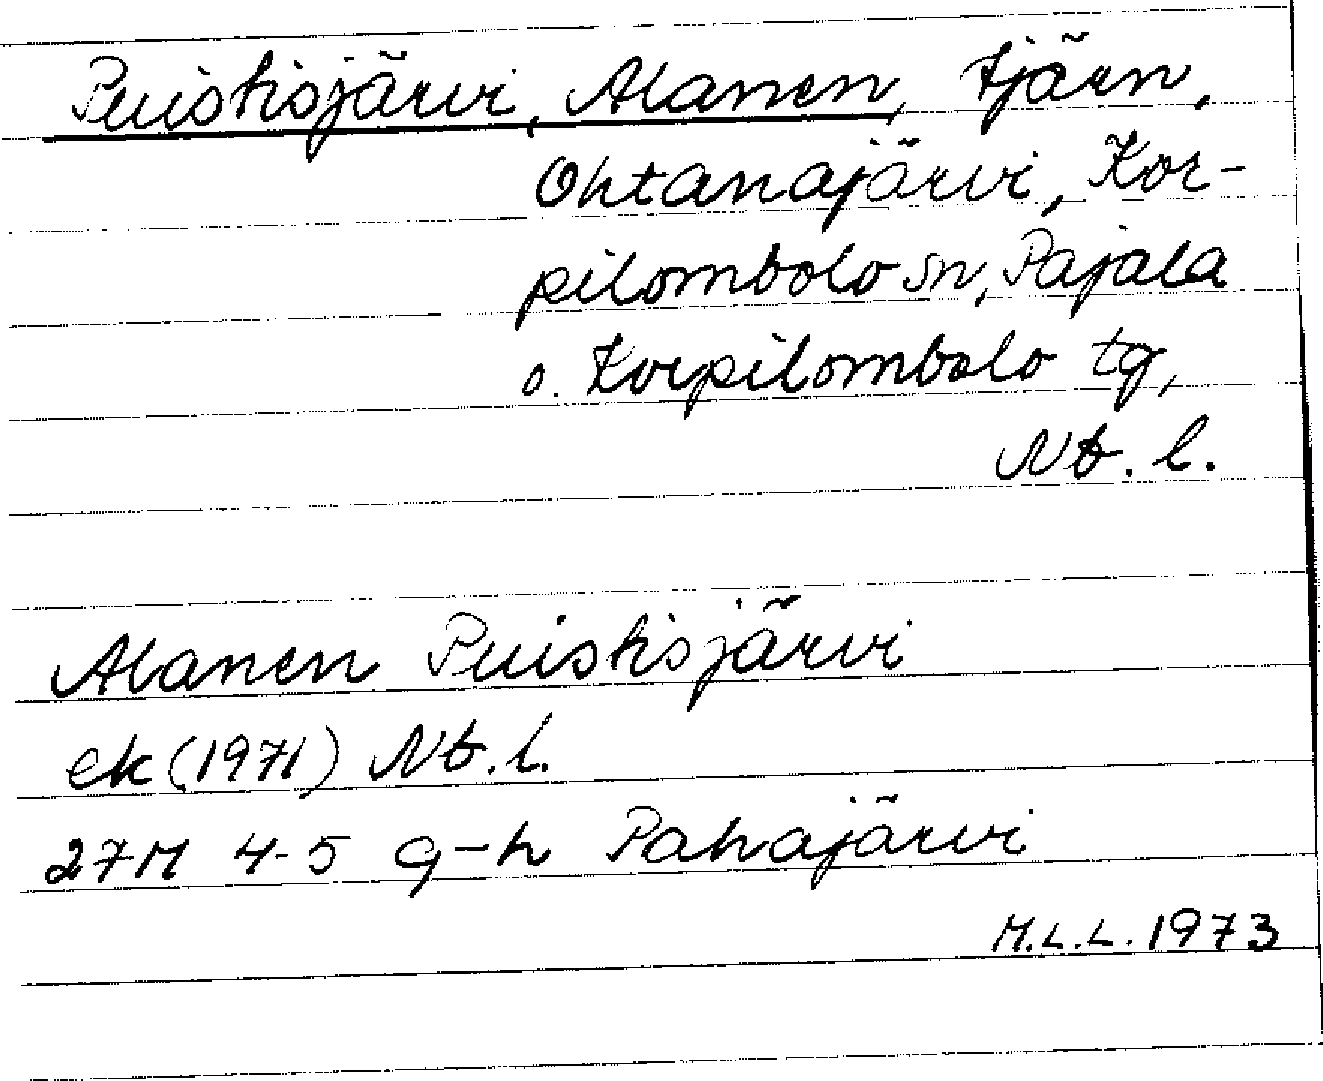 Puistisjärvi, Alanen, tjärn,
Ohtanajärvi, Kor-
pilombolo sn, Pajala
o. Korpilombolo tg,
Nb. l.
Alanen Puistisjärvi
ek (1971) Nb. l.
27M 4-5 g-h Pahajärvi
M.L.L. 1973